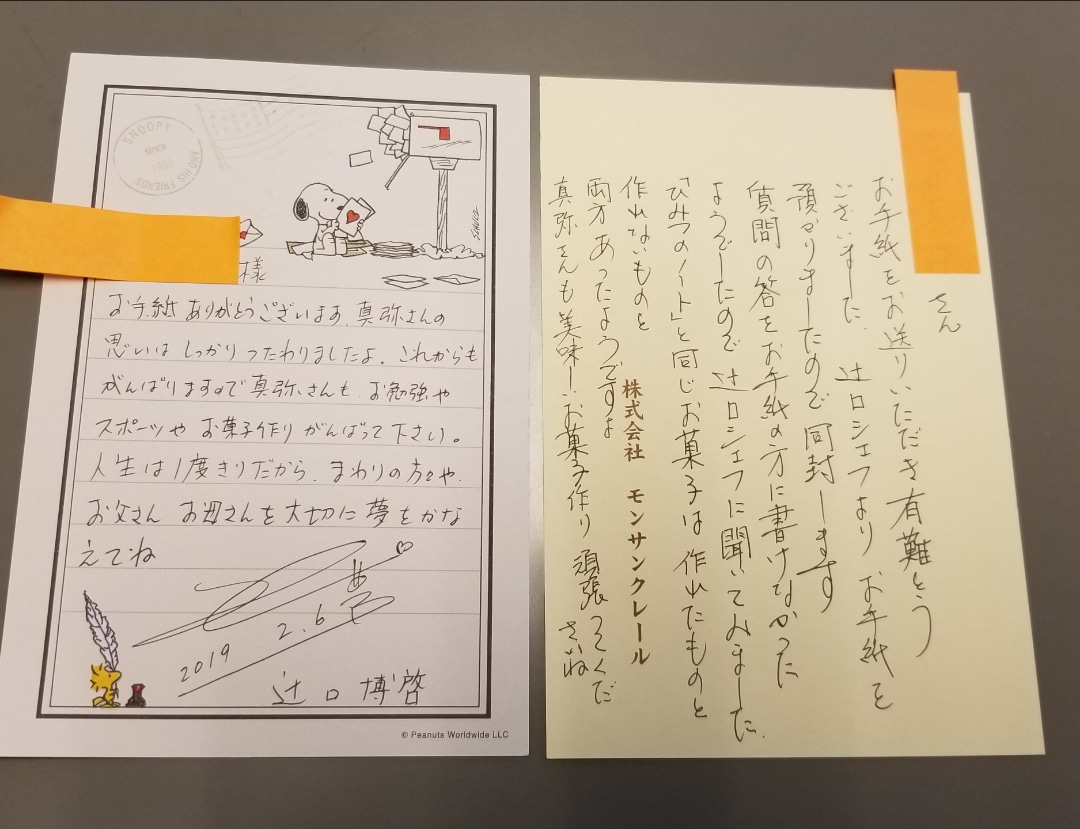 SNOOPY
SINCE
AND HIS FRIENDS
SCHULZ
様
お手紙ありがとうございます。真弥さんの
思いはしっかりつたわりましたよ。これからも
がんばりますので真弥さんも、お勉強や
スポーツや お菓子作りがんばって下さい。
人生は1度きりだから、まわりの方々や、
お父さん お母さんを大切に夢をかな
えてね
夢
2019 2.6
辻口博啓
© Peanuts Worldwide LLC
さん
お手紙をお送りいただき有難とう
ございました。辻口シェフより お手紙を
預かりましたので同封します
質問の答をお手紙の方に書けなかった
ようでしたので辻口シェフに聞いてみました。
「ひみつのノート」と同じお菓子は 作れたものと
作れないものと
両方あったようですよ
真弥さんも美味しいお菓子作り頑張ってくだ
さいね
株式会社 モンサンクレール